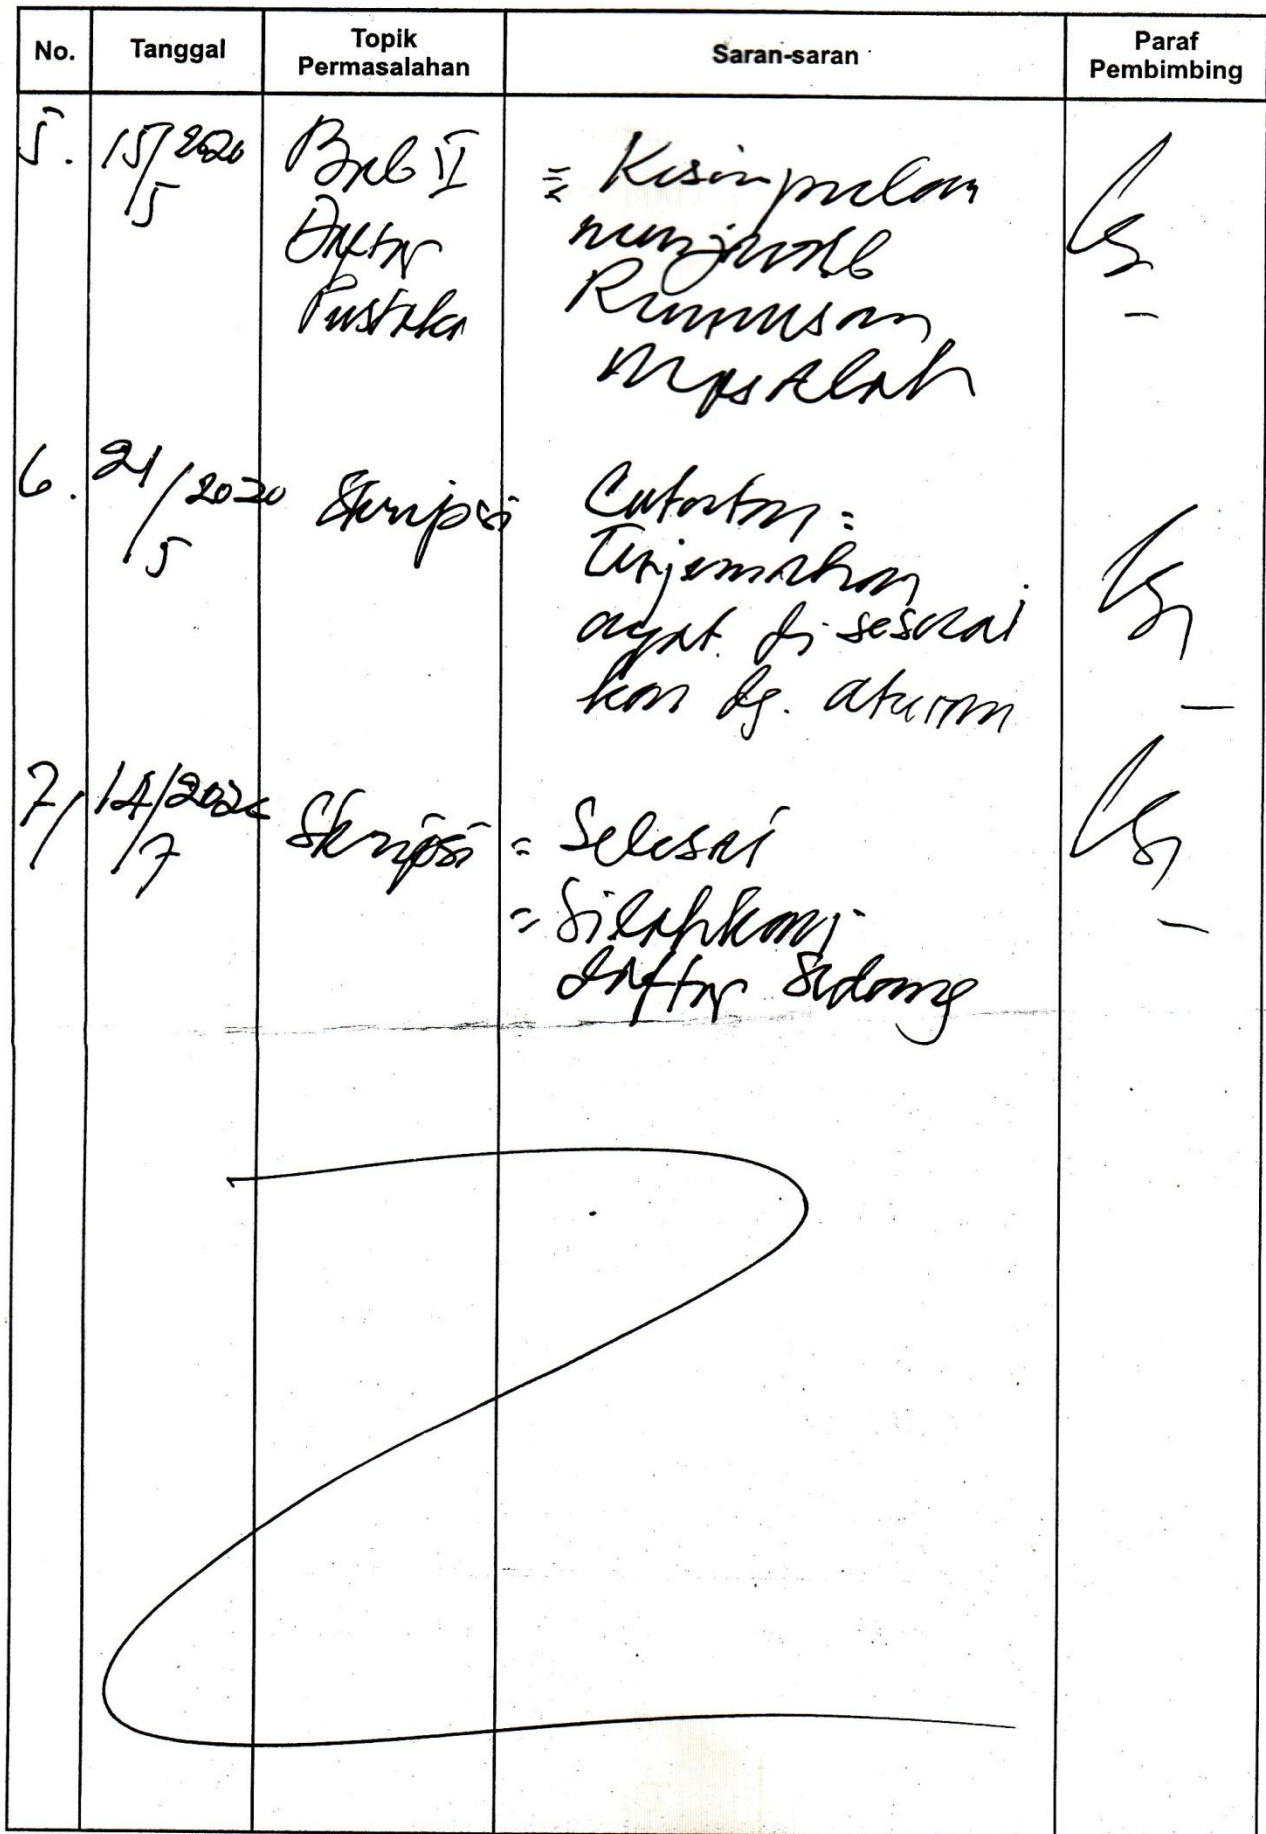 No. Tanggal Topik Permasalahan Saran-saran Paraf Pembimbing
5. 15/5 2020 Bab V = Kesimpulan
Daftar menjawab
Pustaka Rumusan
Masalah
6. 21/5 2020 Skripsi Catatan =
Terjemahan
ayat di sesuai
kan dg. aturan
7, 14/7 2020 Skripsi = Selesai
= Silahkan
daftar Sidang